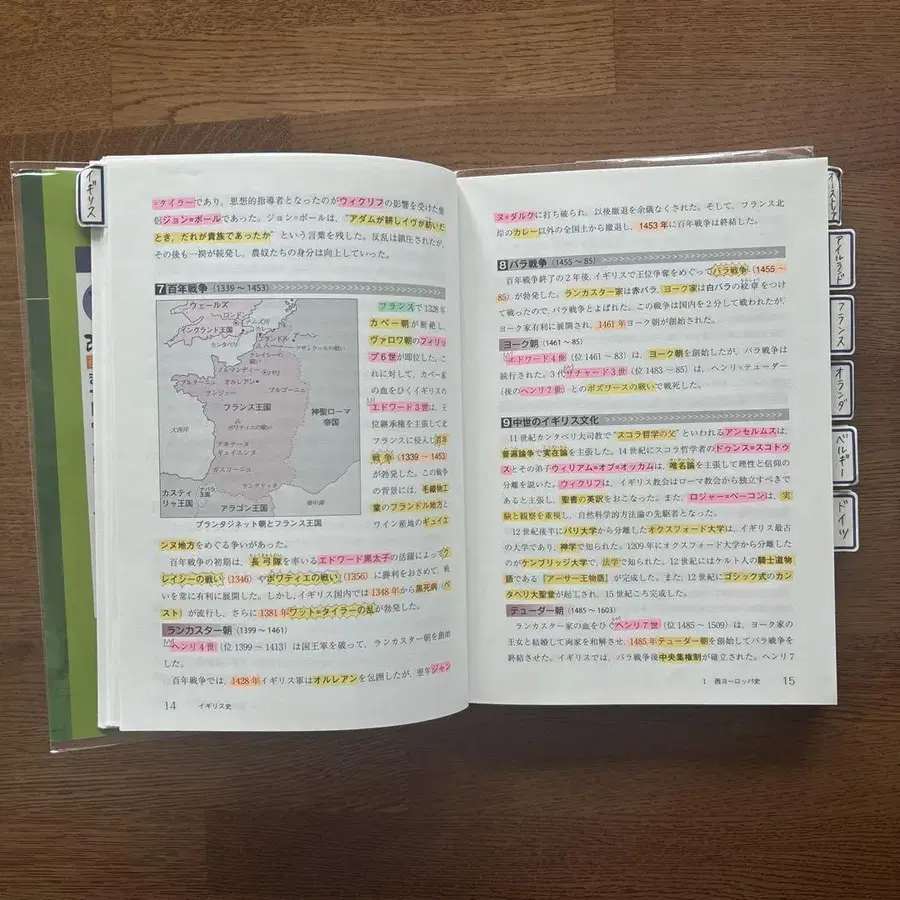 イギリス
=タイラーであり、思想的指導者となったのがウィクリフの影響を受けた僧
侶ジョン=ボールであった。ジョン=ボールは、“アダムが耕しイヴが紡いだ
とき、だれが貴族であったか” という言葉を残した。反乱は鎮圧されたが、
その後も一揆が続発し、農奴たちの身分は向上していった。
7 百年戦争（1339～1453）
ウェールズ
ロンドン
イングランド王国
カンタベリ
カレー
フランドル
クレシーの戦い
ノルマンディー
パリ
ブルターニュ
オルレアン
アンジュー
ブルゴーニュ
フランス王国
神聖ローマ
帝国
大西洋
ポワティエの戦い
アキテーヌ
ギュイエンヌ
ガスコーニュ
ラングドック
カスティ
リャ王国
ナバラ
王国
アラゴン王国
地中海
プランタジネット朝とフランス王国
フランスで1328年
カペー朝が断絶し、
ヴァロワ朝のフィリッ
プ6世が即位した。こ
れに対して、カペー家
の血をひくイギリスの
エドワード3世は、王
位継承権を主張して北
フランスに侵入し百年
戦争（1339～1453）
が勃発した。この戦争
の背景には、毛織物工
業のフランドル地方と
ワイン産地のギュイエ
ンヌ地方をめぐる争いがあった。
百年戦争の初期は、長弓隊を率いるエドワード黒太子の活躍によってク
レイシーの戦い（1346）やポワティエの戦い（1356）に勝利をおさめて、戦
いを常に有利に展開した。しかし、イギリス国内では1348年から黒死病（ペ
スト）が流行し、さらに1381年ワット=タイラーの乱が勃発した。
ランカスター朝（1399～1461）
ヘンリ4世（位1399～1413）は国王軍を破って、ランカスター朝を創始
した。
百年戦争では、1428年イギリス軍はオルレアンを包囲したが、翌年ジャン
14 イギリス史
ヌ=ダルクに打ち破られ、以後撤退を余儀なくされた。そして、フランス北
岸のカレー以外の全国土から撤退し、1453年に百年戦争は終結した。
8 バラ戦争（1455～85）
百年戦争終了の2年後、イギリスで王位争奪をめぐってバラ戦争（1455～
85）が勃発した。ランカスター家は赤バラ、ヨーク家は白バラの紋章をつけ
て戦ったので、バラ戦争とよばれた。この戦争は国内を2分して戦われたが、
ヨーク家有利に展開され、1461年ヨーク朝が創始された。
ヨーク朝（1461～85）
エドワード4世（位1461～83）は、ヨーク朝を創始したが、バラ戦争は
続行された。3代リチャード3世（位1483～85）は、ヘンリ=テューダー
（後のヘンリ7世）とのボズワースの戦いで戦死した。
9 中世のイギリス文化
11世紀カンタベリ大司教で“スコラ哲学の父”といわれるアンセルムスは、
普遍論争で実在論を主張した。14世紀にスコラ哲学者のドゥンス=スコトゥ
スとその弟子ウィリアム=オブ=オッカムは、唯名論を主張して理性と信仰の
分離を説いた。ウィクリフは、イギリス教会はローマ教会から独立すべきで
あると主張し、聖書の英訳をおこなった。また、ロジャー=ベーコンは、実
験と観察を重視し、自然科学的方法論の先駆者となった。
12世紀にパリ大学から分離したオクスフォード大学は、イギリス最古
の大学であり、神学で知られた。1209年にオクスフォード大学から分離した
のがケンブリッジ大学で、法学で知られた。12世紀にはケルト人の騎士道物
語である『アーサー王物語』が完成した。また、12世紀にゴシック式のカン
タベリ大聖堂が起工され、15世紀ころ完成した。
テューダー朝（1485～1603）
ランカスター家の血をひくヘンリ7世（位1485～1509）は、ヨーク家の
王女と結婚して両家を和解させ、1485年テューダー朝を創始してバラ戦争を
終結させた。イギリスでは、バラ戦争後中央集権制が確立された。ヘンリ7
1 西ヨーロッパ史 15
アイルランド
フランス
オランダ
ベルギー
ドイツ